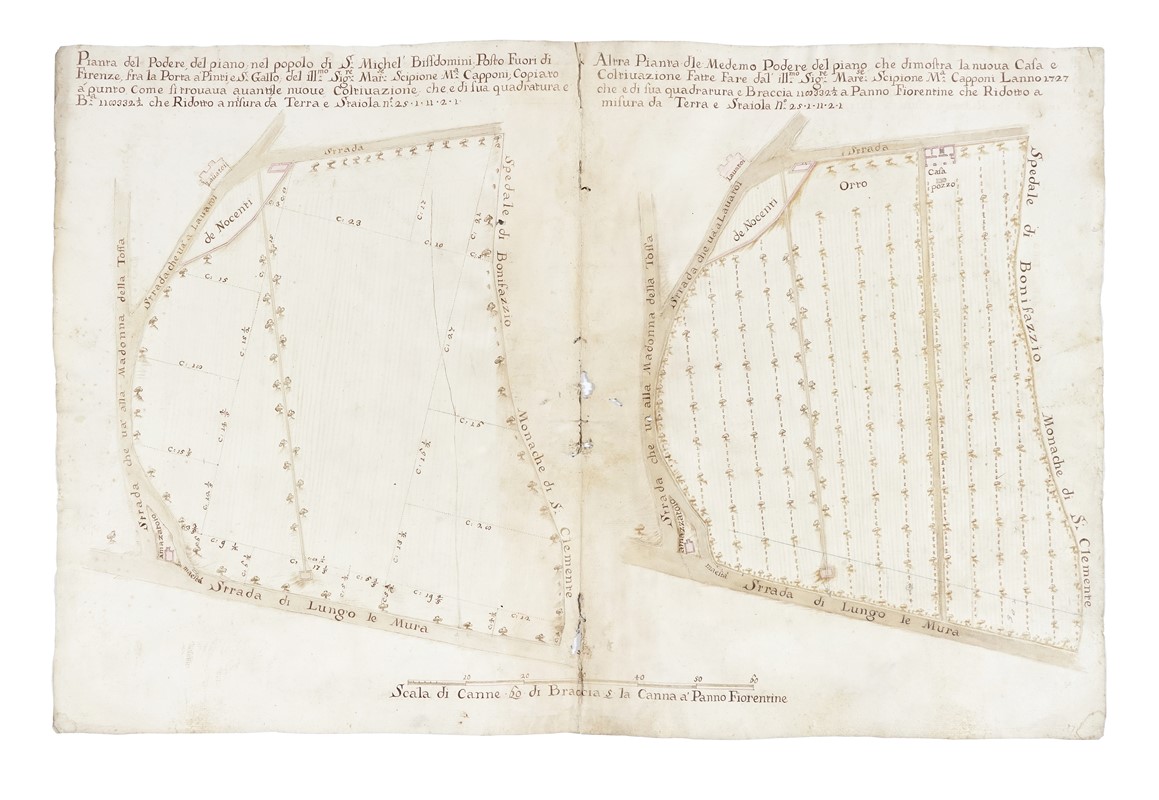 Pianta del Podere del piano nel popolo di S. Michel Bissdomini Posto Fuori di
Firenze, fra la Porta a Pinti e S. Gallo, del ill.mo Sig.re Mar.e Scipione M.a Capponi, Copiato
a punto Come si trovava avanti le nuove Coltivazione che e di sua quadratura e
che Ridotto a misura da Terra e Staiola n.o 25·1·11·2·1·
Altra Pianta dle Medemo Podere del piano che dimostra la nuova Casa e
Coltivazione Fatte Fare dal ill.mo Sig.re Mar.se Scipione M.a Capponi Lanno 1727
che e di sua quadratura e Braccia a Panno Fiorentine che Ridotto a
misura da Terra e Staiola n.o 25·1·11·2·1
Strada
Lavatoi
Strada che va a Lavatoi
de Nocenti
Spedale di Bonifazzio
Monache di S. Clemente
Strada che va alla Madonna della Tossa
Strada di Lungo le Mura
c. 23
c. 17
c. 10
c. 15
c. 27
c. 15
c. 20
c. 19 ½
c. 12
Strada
Lavatoi
Strada che va a Lavatoi
de Nocenti
Orto
Casa
pozzo
Spedale di Bonifazzio
Monache di S. Clemente
Strada che va alla Madonna della Tossa
Strada di Lungo le Mura
10 20 30 40 50 60
Scala di Canne 60 di Braccia 5 la Canna a Panno Fiorentine